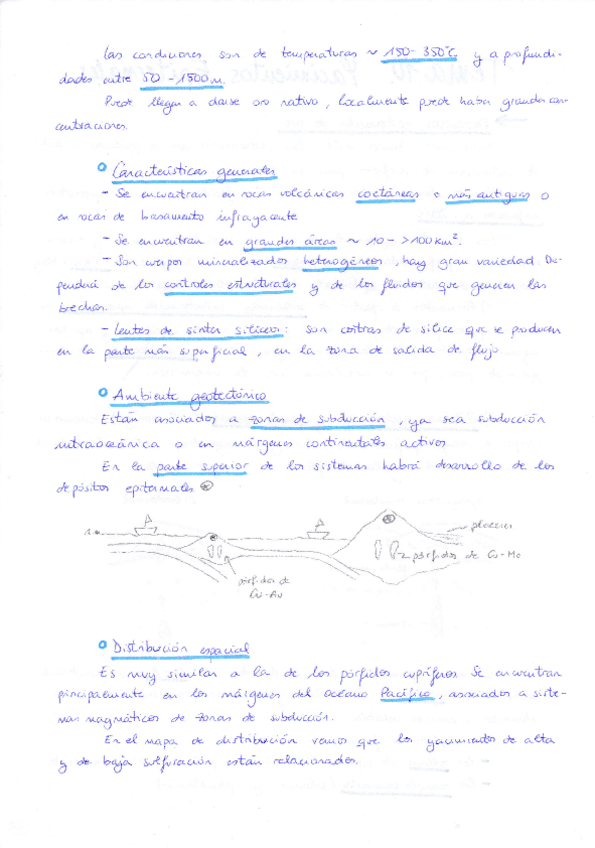 Las condiciones son de temperaturas ~ 150-350°C y a profundi-
dades entre 50-1500m.
Puede llegar a darse oro nativo, localmente puede haber grandes con-
centraciones.
Características generales
- Se encuentran en rocas volcánicas coetáneas o más antiguas o
en rocas de basamento infrayacente
- Se encuentran en grandes áreas ~ 10->100 Km².
- Son cuerpos mineralizados heterogéneos, hay gran variedad. De-
penderá de los controles estructurales y de los fluidos que generen las
brechas.
- Lentes de sinter silíceos: son costras de sílice que se producen
en la parte más superficial, en la zona de salida de flujo
Ambiente geotectónico
Están asociados a zonas de subducción, ya sea subducción
intraoceánica o en márgenes continentales activos
En la parte superior de los sistemas habrá desarrollo de los
depósitos epitermales
placeres
pórfidos de Cu-Mo
pórfidos de
Cu-Au
Distribución espacial
Es muy similar a la de los pórfidos cupríferos. Se encuentran
principalmente en los márgenes del océano Pacífico, asociados a siste-
mas magmáticos de zonas de subducción.
En el mapa de distribución vemos que los yacimientos de alta
y de baja sulfuración están relacionados.